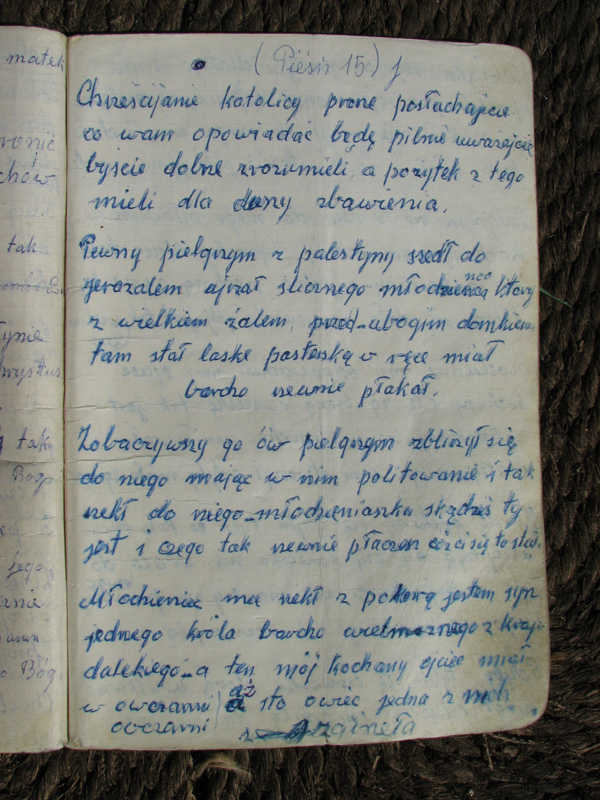 matek
ronić
chów
tak
tynie
tak
Bog
tego
Bóg
(Pieśń 15)
Chrześcijanie katolicy prone posłuchajcie
co wam opowiadać będę pilnie uwarzajcie
byście dobne zrozumieli, a pożytek z tego
mieli dla duny zbawienia.
Pewny pielgnym z palestyny szedł do
jerozalem ujzał slicznego młodzienca który
nca
z wielkiem żalem, przed ubogim domkiem
tam stał laskę pasterską w ręce miał
bardzo newnie płakał.
Zobaczywny go ów pielgnym zbliżył się
do niego mając w nim politowanie i tak
nekł do niego młodzieniaszku skądeś ty
jest i czego tak newnie płaczen cóż ci się to stało
Młodzieniec mu nekł z pokorą jestem syn
jednego króla bardzo wielmożnego z kraju
dalekiego a ten mój kochany ojciec miał
w owczarni aż sto owiec jedna z nich
owczarni zginęła